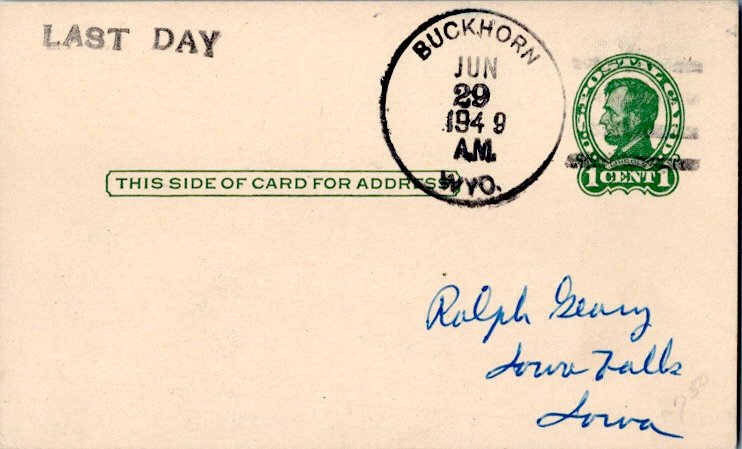 LAST DAY
BUCKHORN
JUN
29
1949
A.M.
WYO.
U.S. POSTAL CARD
LINCOLN
1 CENT 1
THIS SIDE OF CARD FOR ADDRESS
Ralph Geary
Iowa Falls
Iowa
7.50